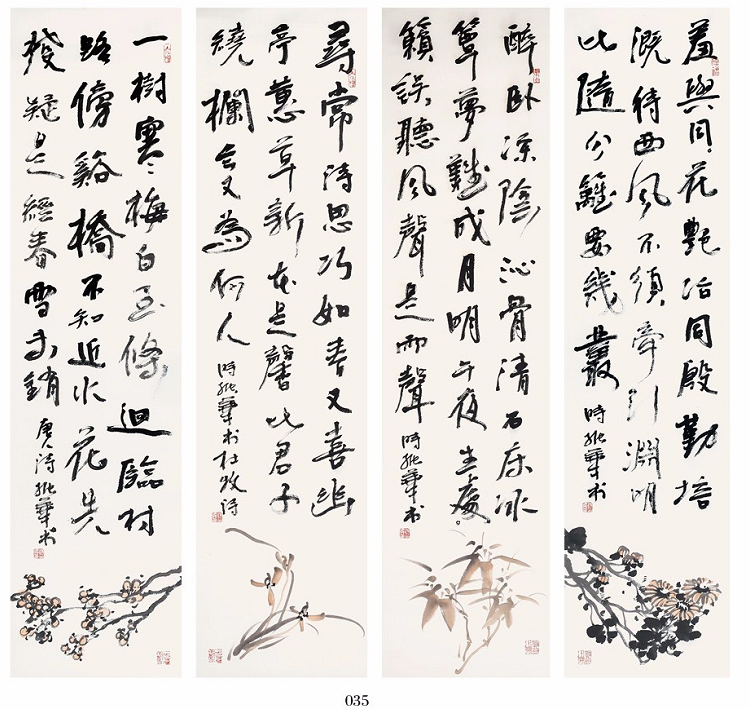 一樹寒梅白玉條迴臨村
路傍谿橋不知近水花先
發疑是經春雪未銷
唐人詩 華书
尋常詩思巧如春又喜幽
亭蕙草新本是馨比君子
繞欄今又為何人
時 華书杜牧詩
醉臥涼陰沁骨清石床冰
簟夢難成月明午夜生虛
籟誤聽風聲是雨聲
時 華书
羞與同花艷冶同殷勤培
溉待西風不須牽引淵明
比隨分籬要幾叢
時 華书
035